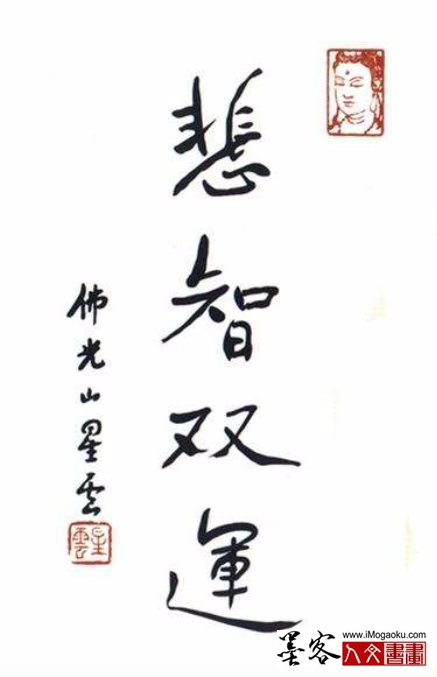 悲智双運
佛光山星雲
星雲
墨客
www.iMogaoku.com
人文書畫